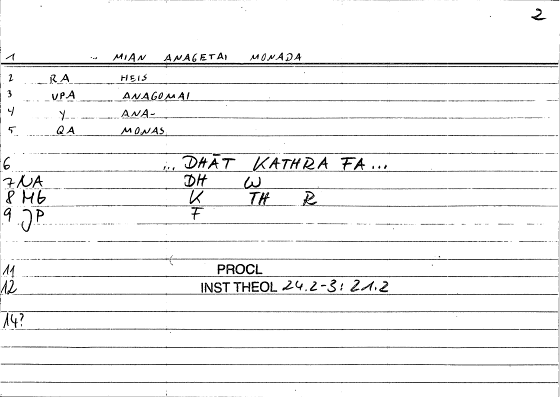 2
1 .. MIAN ANAGETAI MONADA
2 RA HEIS
3 VPA ANAGOMAI
4 Y ANA-
5 QA MONAS
6 ... DHĀT KATHRA FA...
7 NA DH W
8 Mb K TH R
9 JP F
11 PROCL
12 INST THEOL 24.2-3; 21.2
14?